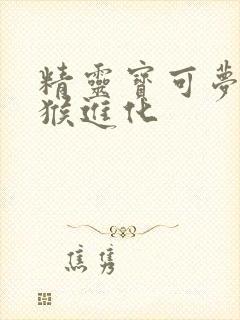 精靈寶可夢
猴進化
焦雋